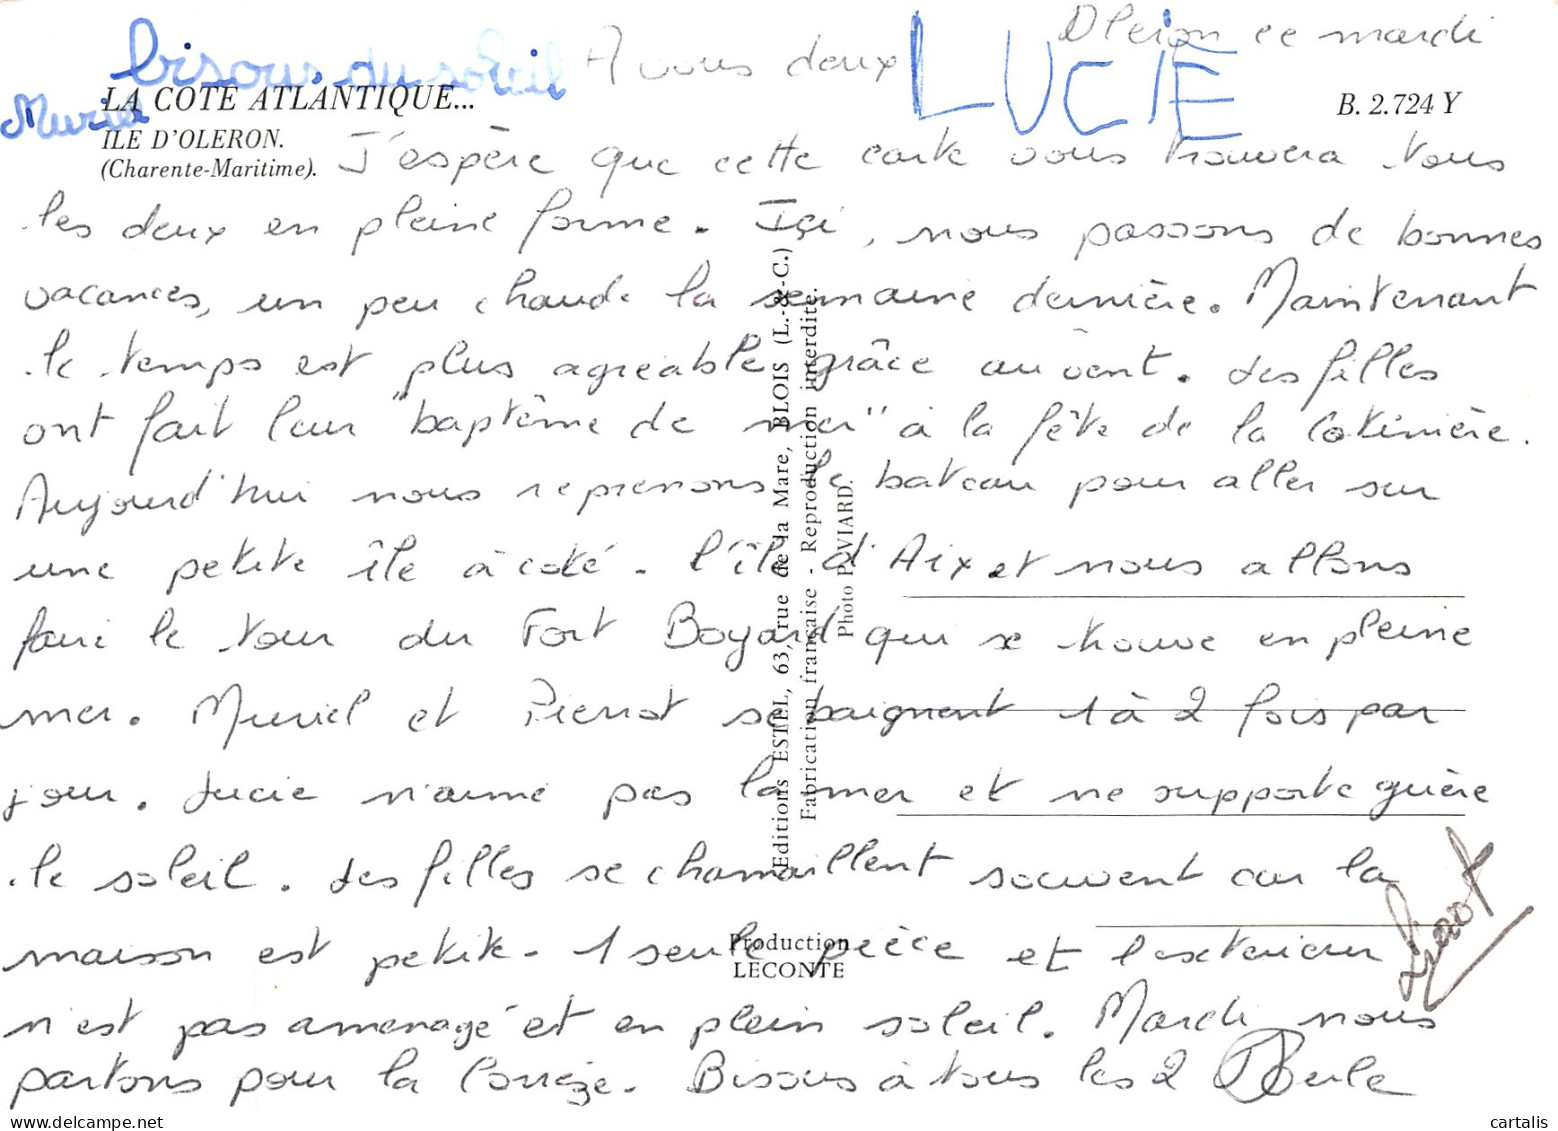 Oleron ce mardi
bisous du soleil
A vous deux
LUCIE
Muriel
LA COTE ATLANTIQUE...
B. 2.724 Y
ILE D'OLERON.
(Charente-Maritime).
J'espère que cette carte vous trouvera tous
les deux en pleine forme. Içi, nous passons de bonnes
vacances, un peu chaude la semaine dernière. Maintenant
le temps est plus agréable grâce au vent. Les filles
ont fait leur "baptême de mer" à la fête de la Cotinière.
Aujourd'hui nous reprenons le bateau pour aller sur
une petite île à coté. l'île d'Aix et nous allons
faire le tour du Fort Boyard qui se trouve en pleine
mer. Muriel et Pierrot se baignent 1 à 2 fois par
jour. Lucie n'aime pas la mer et ne supporte guère
le soleil. Les filles se chamaillent souvent car la
maison est petite. 1 seule pièce et l'exterieur
n'est pas amenagé et en plein soleil. Mardi nous
partons pour la Corrèze. Bisous à tous les 2
Pierrot
Editions ESTEL, 63, rue de la Mare, BLOIS (L.-&-C.)
Fabrication française - Reproduction interdite.
Photo P. VIARD.
Production
LECONTE
www.delcampe.net
cartalis